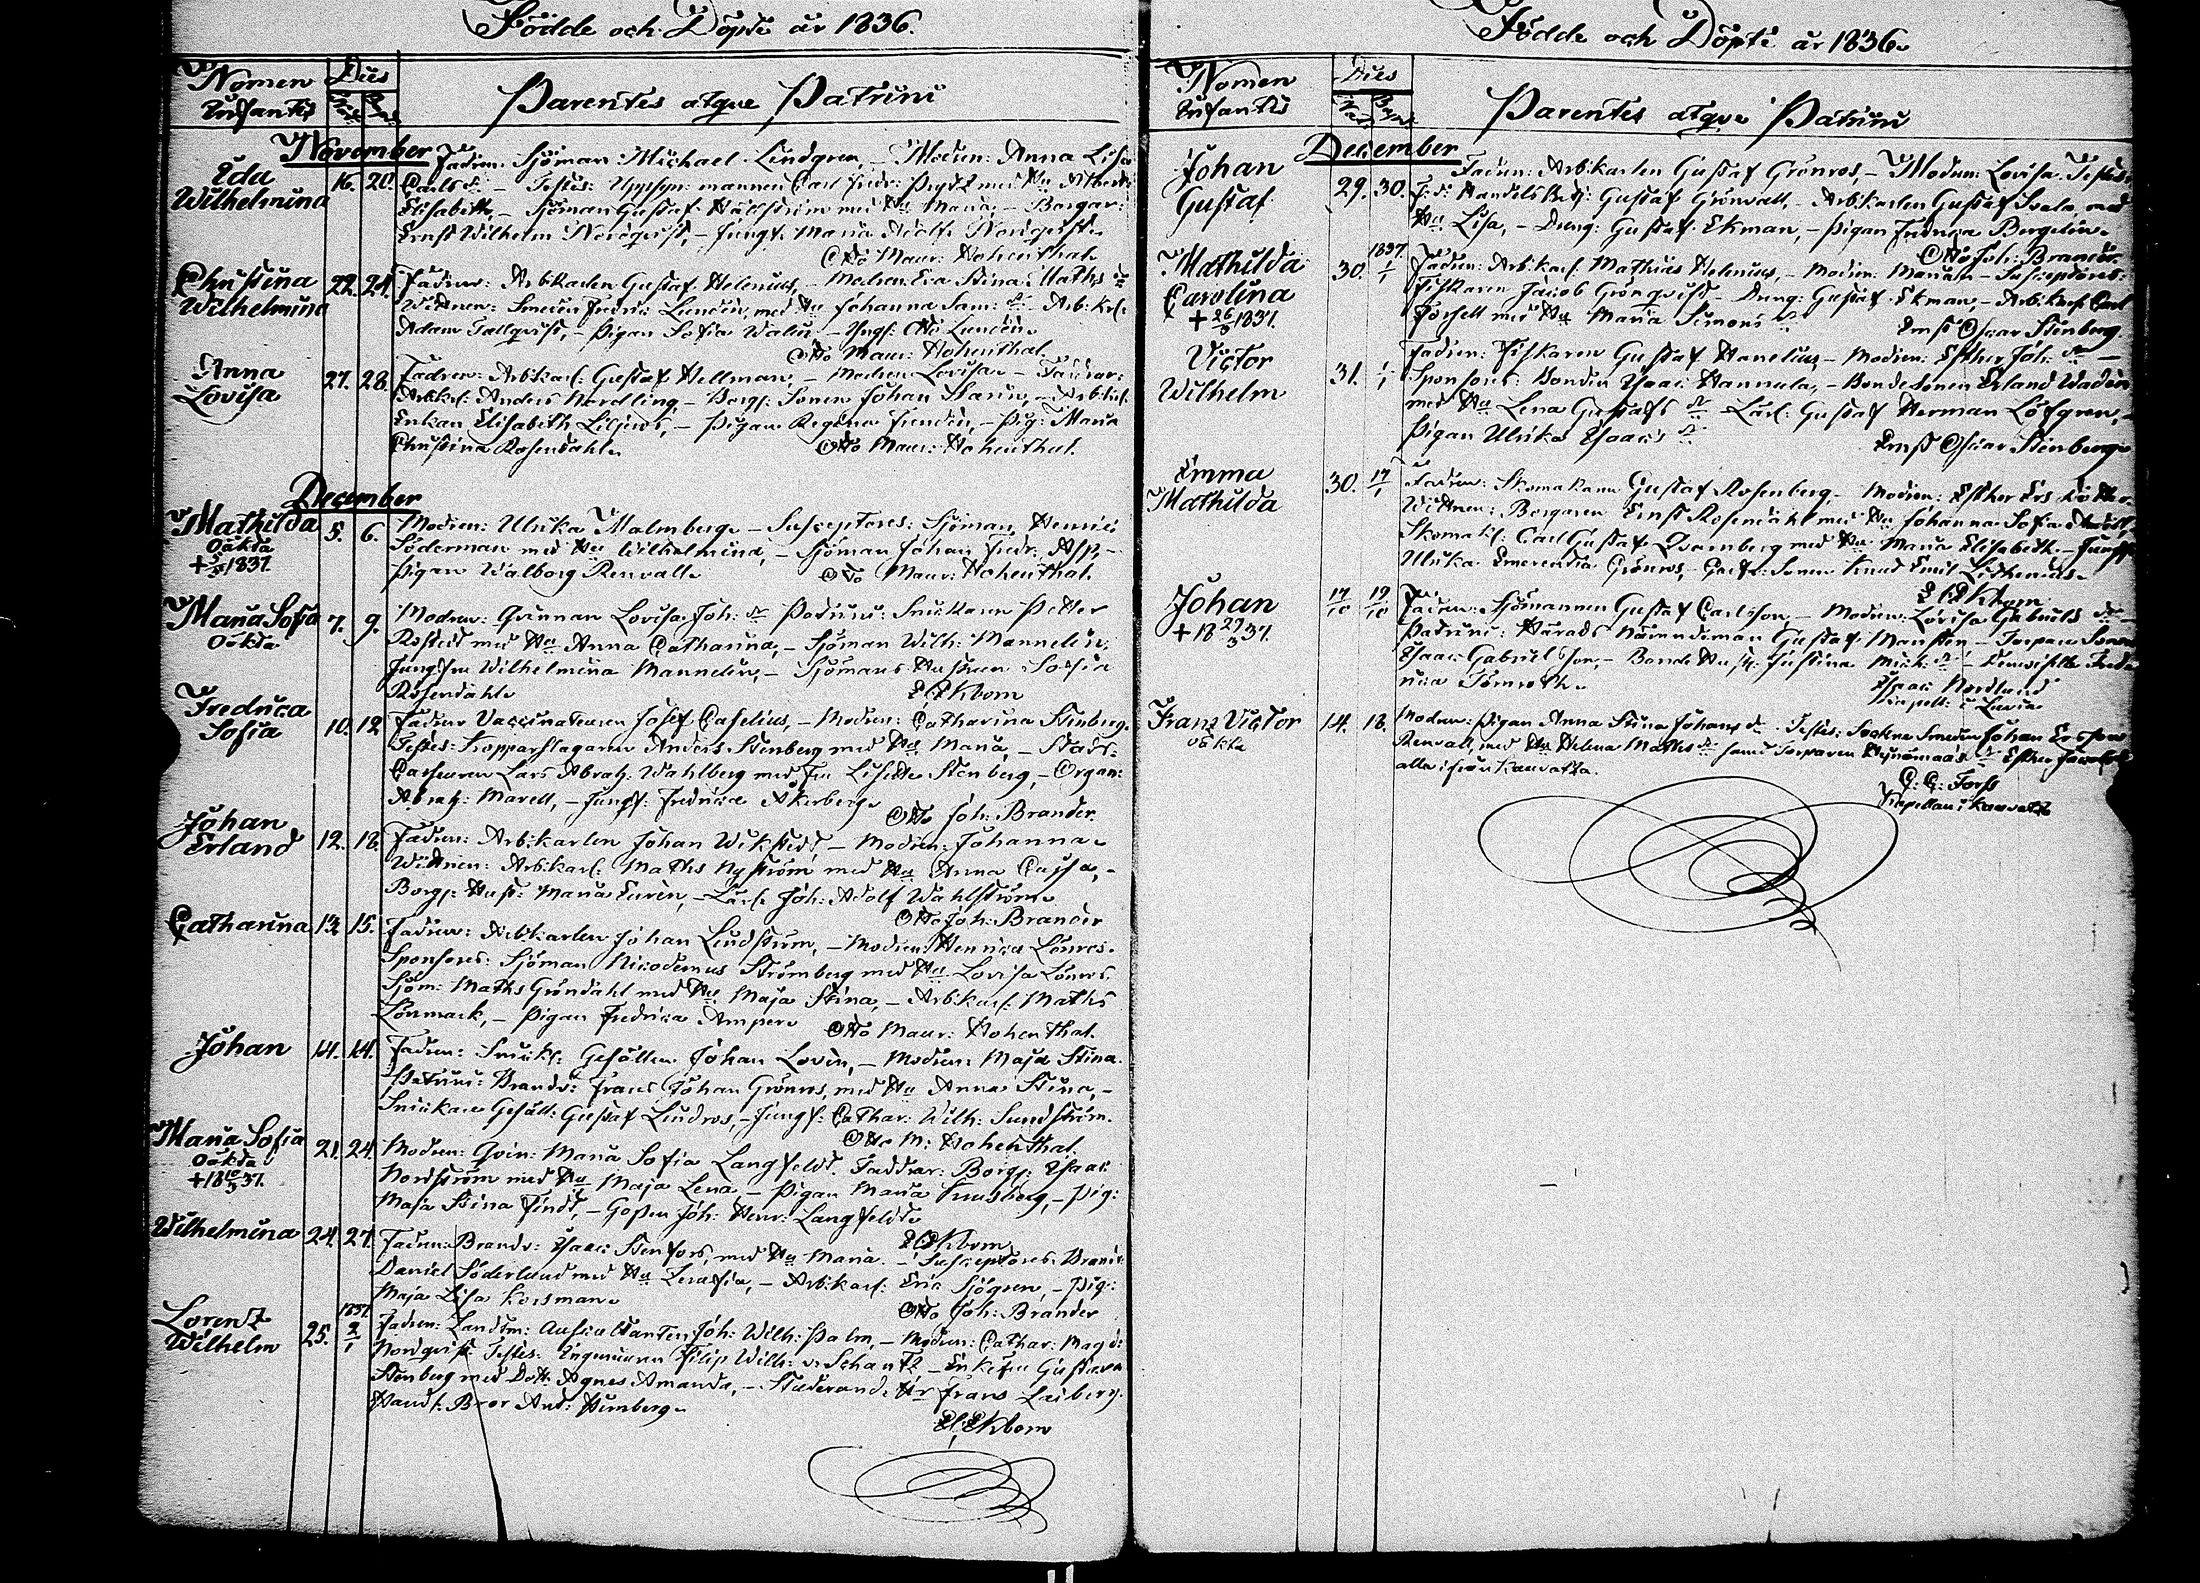 Födde och Döpte år 1836.
Nomen Infantis
Dies
Parentes atque Patrini
November
Ida Wilhelmina
16. 20.
Fadren: Sjöman Michael Lindgren, – Modren: Anna Lisa
Carls dr – Testes: Uppsyn: mannen Carl Fredr: med Hu Alberta
Elisabeth, – Sjöman Gustaf Hällström med Hu Maria, – Borgar:
Ernst Wilhelm Nordqvist, – Jungf: Maria Adolf: Nordqvist.
Otto Maur: Hohenthal.
Christina Wilhelmina
22. 24.
Fadren: Arb:karlen Gustaf Helenius, – Modren: Eva Stina Maths dr
Wittnen: Smeden Fredric Lundén, med Hu Johanna Sam: dr – Arb:krl:
Adam Tallqvist, – Pigan Sofia Walin – Yngl: Otto Lundén.
Otto Maur: Hohenthal.
Anna Lovisa
27. 28.
Fadren: Arb:karl: Gustaf Hellman, – Modren Lovisa – Faddrar:
Arb:krl: Anders Nordling, – Borg: Sonen Johan Starin, – Arb:krl:
Enkan Elisabeth Liljeros, – Pigan Regina Frendén, – Pig: Maria
Christina Rosendahl.
Otto Maur: Hohenthal.
December
Mathilda
Oäkta
+ 3/5 1837.
5. 6.
Modren: Ulrika Malmberg – Susceptores: Sjöman Henric
Söderman med Hu Wilhelmina, – Sjöman Johan Fredr: Asp, –
Pigan Walborg Renvall.
Otto Maur: Hohenthal.
Maria Sofia
Oäkta
7. 9.
Modren: Qvinnan Lovisa Joh: dr Patrini: Snickaren Petter
Rostedt med Hu Anna Catharina, – Sjöman Wilh: Mannelin,
Jungfru Wilhelmina Mannelin, – Sjömans Hustrun Sofia
Rosendahl.
Ekbom
Fredrica Sofia
10. 12
Fadren Vaccinateuren Josef Caselius, – Modren: Catharina Stenberg.
Testes: Kopparslagaren Anders Stenberg med Hu Maria, – Stads:
Casseuren Lars Abrah. Wahlberg med Fru Lisette Stenberg, – Organ:
Abrah: Marell, – Jungf: Fredrica Åkerberg.
Otto Joh: Brander.
Johan Erland
12. 18.
Fadren: Arb:karlen Johan Wikstedt, – Modren: Johanna.
Wittnen: Arb:karl: Maths Nyström med Hu Anna Cajsa, –
Borg: Hust: Maria Eurén, – Lärl: Joh: Adolf Wahlström.
Otto Joh: Brander
Catharina
13. 15.
Fadren: Arb:karlen Johan Lindström, – Modren: Henrica Lönros.
Sponsores: Sjöman Nicodemus Strömberg med Hu Lovisa Lönros.
Sjöm: Maths Gröndahl med Hu Maja Stina, – Arb:karl: Maths
Lönmark, – Pigan Fredrica Amper.
Otto Maur: Hohenthal.
Johan
14. 14.
Fadren: Snick: Gesällen Johan Lovén, – Modren: Maja Stina.
Patrini: Brandv: Frans Johan Grönros, med Hu Anna Stina, –
Snickare Gesäll: Gustaf Lindros, – Jungf: Cathar: Wilh: Sundström.
Otto M: Hohenthal.
Maria Sofia
Oäkta
21. 24.
Modren: Qvin: Maria Sofia Langfeldt. Faddrar: Borg: Isaac
Nordström med Hu Maja Lena – Pigan Maria Kunsberg, – Pig:
Maja Stina Findt, – Gossen Joh: Henr: Langfeldt.
Ekbom
Wilhelmina
24. 27.
Fadren: Brandv: Isaac Stenfors, med Hu Maria. – Susceptores: Brandv:
Daniel Söderlund med Hu Serafia, – Arb:karl: Eric Sjögren, – Pig:
Maja Lisa Korsman.
Otto Joh: Brander
Lorentz Wilhelm
25. 1837 2/1
Fadren: Landtm: Auscultanten Joh: Wilh: Palm, – Modren: Cathar: Magd:
Nordqvist. Testes: Ingenieurn Filip Wilh: v: Schantz – Enkefru Gustava
Stenberg med Dott: Agnes Amanda, – Studerand: Hr Frans Laiberg.
Handl: Bror Ant:
Ekbom
Födde och Döpte år 1836.
Nomen Infantis
Dies
Parentes atque Patrini
December
Johan Gustaf
29. 30.
Fadren: Arb:karlen Gustaf Grönros, – Modren: Lovisa. Testes:
Handels Betj: Gustaf Grönvall, – Arb:karlen Gustaf med
Hu Lisa, – Dreng: Gustaf Ekman, – Pigan Fredrica Bergelin.
Otto Joh: Brander.
Mathilda Carolina
+ 26/5 1837.
30. 1837. 1/1
Fadren: Arb:karl: Mathias Helenius, – Modren: Maria – Susceptores:
Fiskaren Jacob Grönqvist – Dreng: Gustaf Ekman, – Arb:karl Carl
Forsell med Hu Maria Simons dr
Ernst Oscar Stenberg.
Victor Wilhelm
31. 1/1
Fadren: Fiskaren Gustaf Hanelius, – Modren: Esther Joh: dr –
Sponsores: Bonden Isaac Hannula, – Bonde Sonen Erland Wadén
med Hu Lena Gustafs dr Lärl: Gustaf Herman Löfgren, –
Pigan Ulrika Isaacs dr
Ernst Oscar Stenberg.
Emma Mathilda
30. 17/1
Fadren: Skomakaren Gustaf Rosenberg, – Modren: Esther Ers dotter
Wittnen: Borgaren Ernst Rosendahl med Hu Johanna Sofia
Skomak: Carl Gustaf Qvarnberg med Hu Maria Elisabeth – Jungf:
Ulrika Emerentia Grönros, Sonen Knud Emil Lithenius.
Ekbom
Johan
+ 18 29/3 37.
17/10 19/10
Fadren: Sjömannen Gustaf Carlsson, – Modren: Lovisa Gabriels dr
Patrini: Härads Närendeman Gustaf – Torpare Sonen
Isaac Gabrielsson, – Bonde Hust: Justina Mich: dr – Demoiselle Fred-
rica Törnroth.
Isaac Nordlund
Kapell: i Lavia
Frans Victor
oäkta
14. 18.
Modren: Pigan Anna Stina Johans dr. Testes: Sockne Smeden Johan Ersson
Renvall, med Hu Helena Maths dr samt Torparen dr Esther
alla ifrån Kauvatsa.
Forss
Kapellan i Kauvatsa